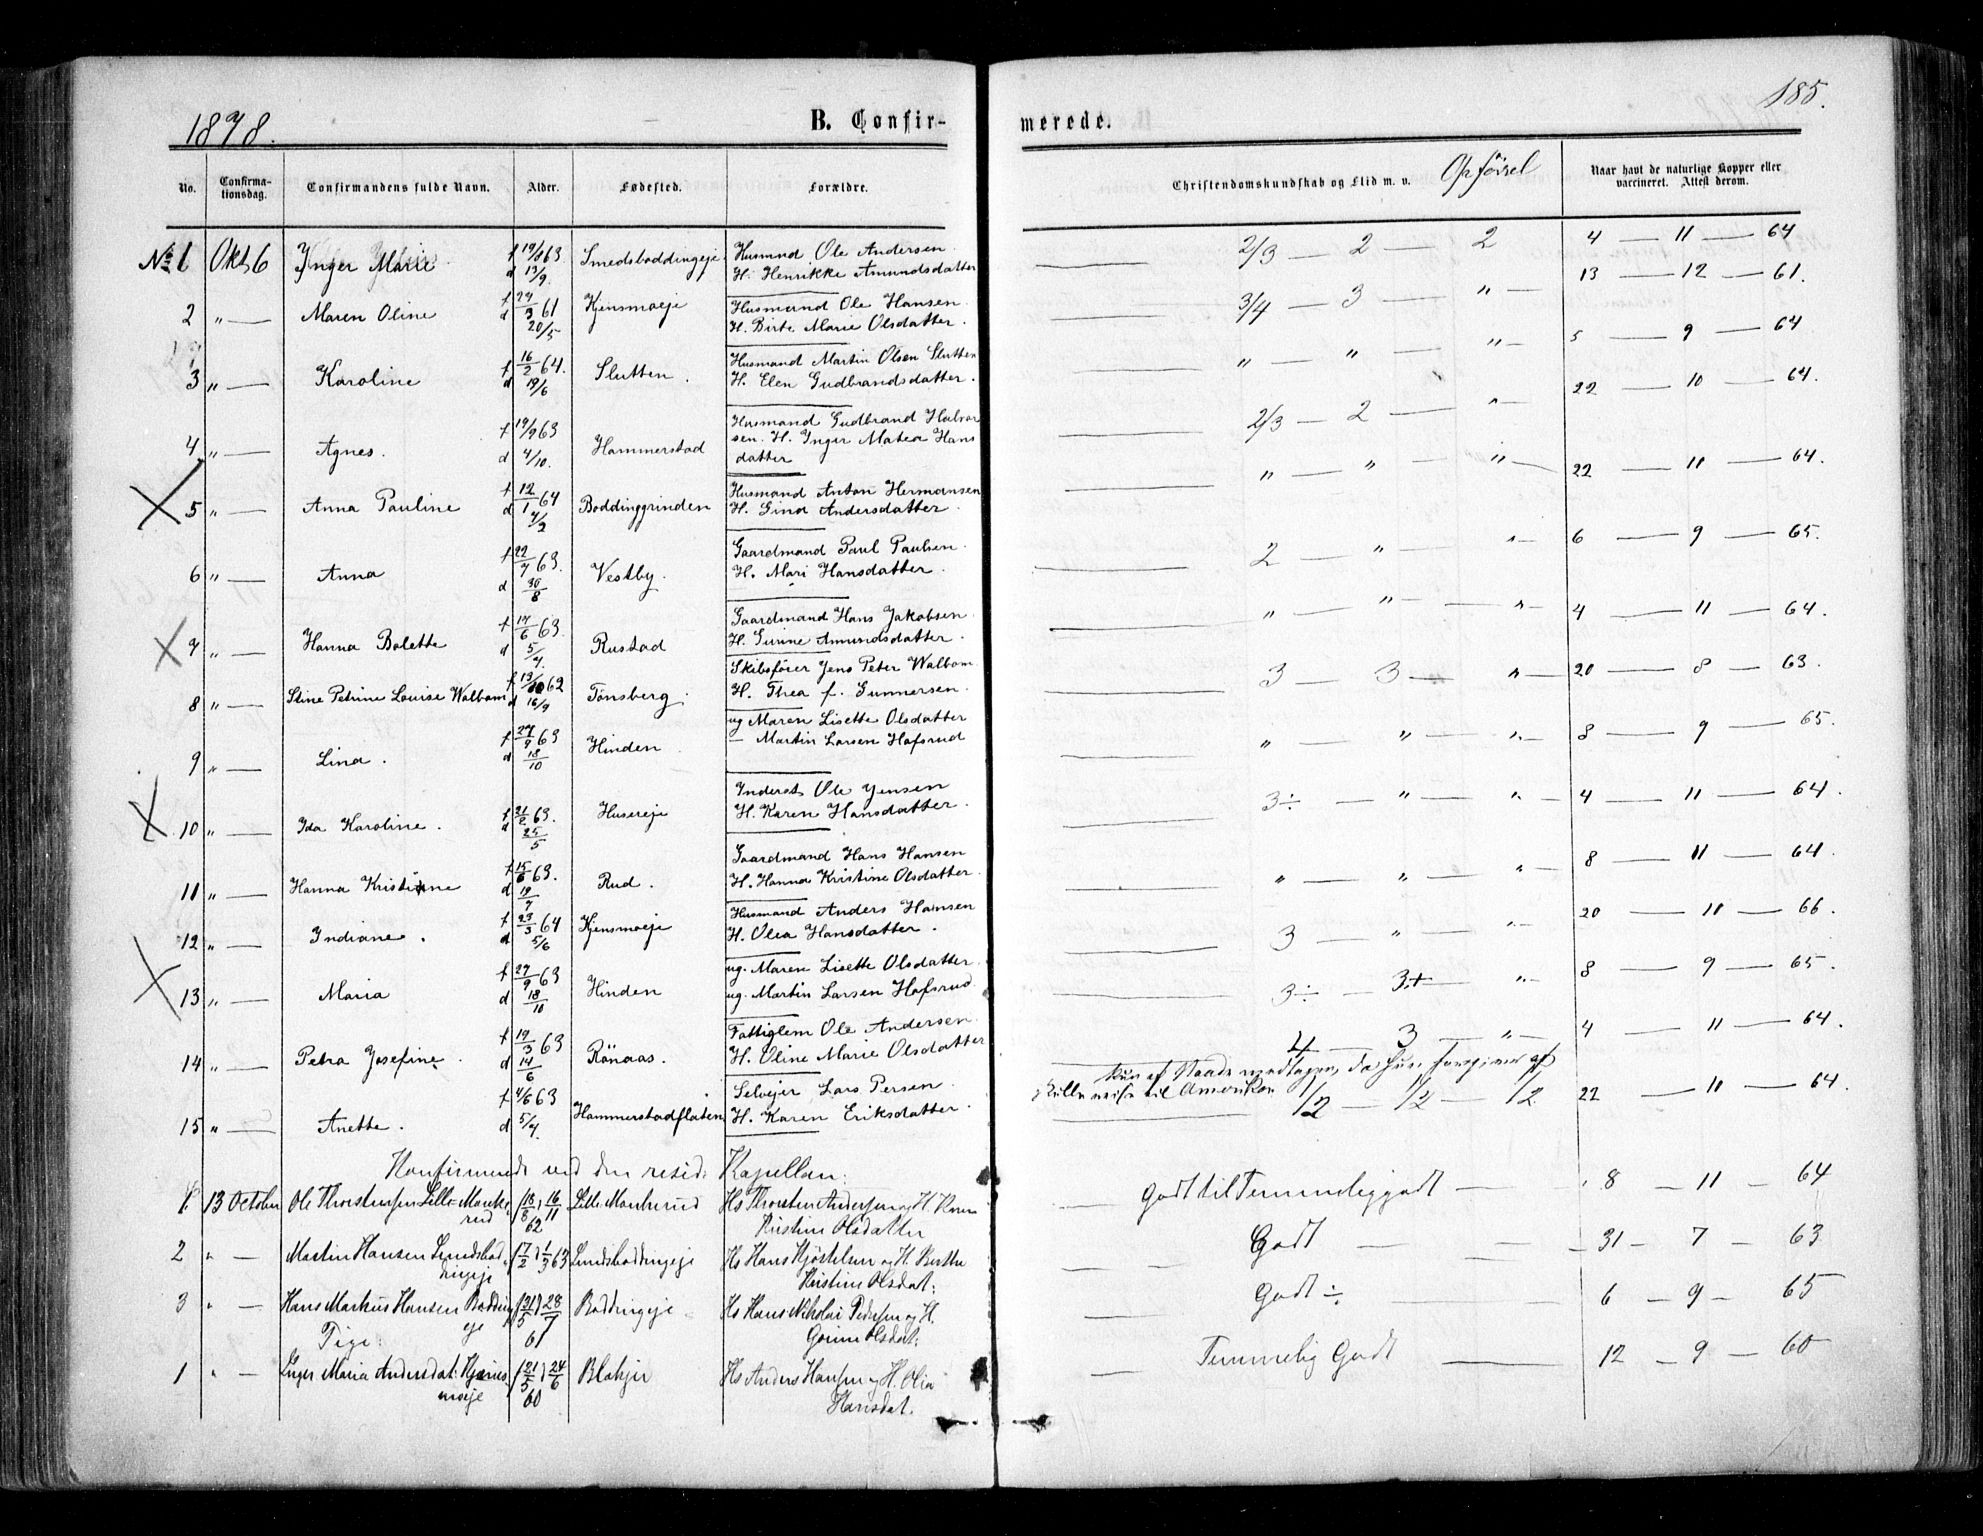 1878.
B. Confir-
merede.
185.
No.
Confirma-
tionsdag.
Confirmandens fulde Navn.
Alder.
Fødested.
Forældre.
Christendomskundskab og Flid m. v.
Opførsel
Naar havt de naturlige Kopper eller
vaccineret. Attest derom.
No 1 Okt 6 Inger Marie f 19/8 63 d 13/9 Smedsboddingeje Husmnd Ole Andersen
H. Henrikke Amundsdatter 2/3 — 2 — 2 4 — 11 — 64
2 " — Maren Oline f 24/3 61 d 20/5 Kjensmoeje Husmand Ole Hansen
H. Birte Marie Olsdatter. 3/4 — 3 — " — 13 — 12 — 61.
3 " — Karoline f 16/2 64. d 19/6 Slutten. Husmand Martin Olsen Slutten
H. Elen Gudbrandsdatter. " — " — " — 5 — 9 — 64
4 " — Agnes. f 19/9 63 d 4/10. Hammerstad Husmand Gudbrand Halvor
sen. H. Inger Matea Hans
datter 2/3 — 2 — " — 22 — 10 — 64.
5 " — Anna Pauline f 12/1 64 d 4/2 Boddinggrinden Husmand Anton Hermansen
H. Gina Andersdatter. " — " — " — 22 — 11 — 64.
6 " — Anna f 22/7 63. d 30/8 Vestby. Gaardmand Paul Paulsen.
H. Mari Hansdatter. 2 — " — " — 6 — 9 — 65.
7 " — Hanna Bolette f 14/6 63. d 5/7. Rustad Gaardmand Hans Jakobsen.
H. Gurine Amundsdatter. " — " — " — 4 — 11 — 64.
8 " — Stine Petrine Louise Walbom f 13/ 62 d 16/9 Tönsberg. Skibsfører Jens Peter Walbom
H. Thea f. Gunnersen. 3 — 3 — " — 20 — 8 — 63.
9 " — Lina. f 27/9 63 d 18/10 Hinden. ug Maren Lisette Olsdatter
— Martin Larsen Hafsrud " — " — " — 8 — 9 — 65.
10 " — Ida Karoline. f 21/2 63. d 25/5 Husereje Inderst Ole Jensen
H. Karen Hansdatter. 3÷ — " — " — 4 — 11 — 64.
11 " — Hanna Kristiane f 15/6 63. d 19/7 Rud. Gaardmand Hans Hansen
H. Hanna Kristine Olsdatter. " — " — " — 8 — 11 — 64.
12 " — Indiane. f 23/3 64 d 5/6 Kjensmoeje Husmand Anders Hansen
H. Olea Hansdatter. 3 — " — " — 20 — 11 — 66.
13 " — Maria f 27/9 63 d 18/10 Hinden ug. Maren Lisette Olsdatter.
ug. Martin Larsen Hafsrud 3÷ — 3+ — " — 8 — 9 — 65.
14 " — Petra Josefine. f 19/3 63 d 14/6 Rönaas. Fattiglem Ole Andersen.
H. Oline Marie Olsdatter 4 — 3 — " — 4 — 11 — 64.
kun af Naade modtagen, da hun
skulde reise til Amerika
15 " — Anette. f 4/6 63 d 5/7. Hammerstadflaten Selvejer Lars Persen.
H. Karen Eriksdatter. 1/2 — 1/2 — 1/2 22 — 11 — 64.
Konfirmerede ved den resid: Kapellan:
1. 13 October Ole Thorstensen Lille Mørke-
rud (18/8) 16/11 62 Lille Mørkerud Hs Thorsten Andersen og H. Karen
Kristine Olsdatter Godt til Temmeliggodt — 8 — 11 — 64
2 " — Martin Hansen Smedsbod-
dingeje (7/2) 1/3 63 Smedsboddingeje Hs Hans Kjöstelsen og H. Berthe
Kristine Olsdat: Godt — 31 — 7 — 63
3 " — Hans Markus Hansen Bodding-
eje (21/5) 28/7 61 Boddingeje Hs Hans Nikolai Pedersen og H.
Gorine Olsdat: Godt ÷ 6 — 9 — 65
Pige:
1 " — Inger Maria Andersdat: Kjens-
moeje (21/5) 24/6 60 Blakjer Hs Anders Hansen og H. Olia
Hansdat. Temmelig Godt — 12 — 9 — 60